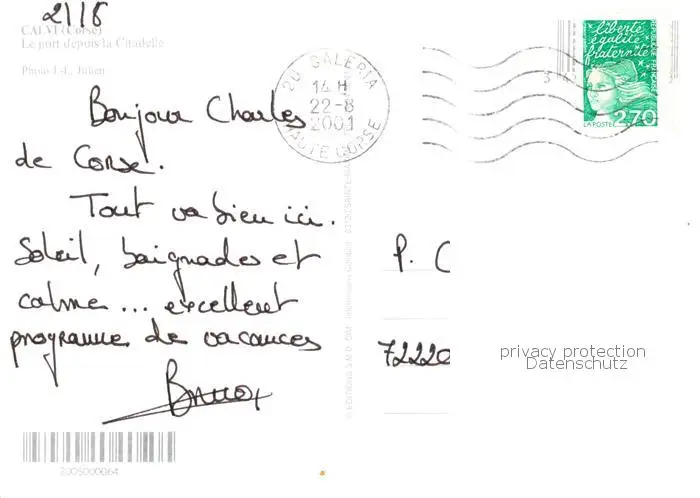 21/8
CALVI (Corse)
Le port depuis la Citadelle
Photo J.-L. Julien
Bonjour Charles
de Corse.
Tout va bien ici.
Soleil, baignades et
calme ... excellent
programme de vacances
2B GALERIA
14 H
22-8
2001
HAUTE CORSE
liberté
égalité
fraternité
LA POSTE
2,70
P. C
72220
privacy protection
Datenschutz
2005000064